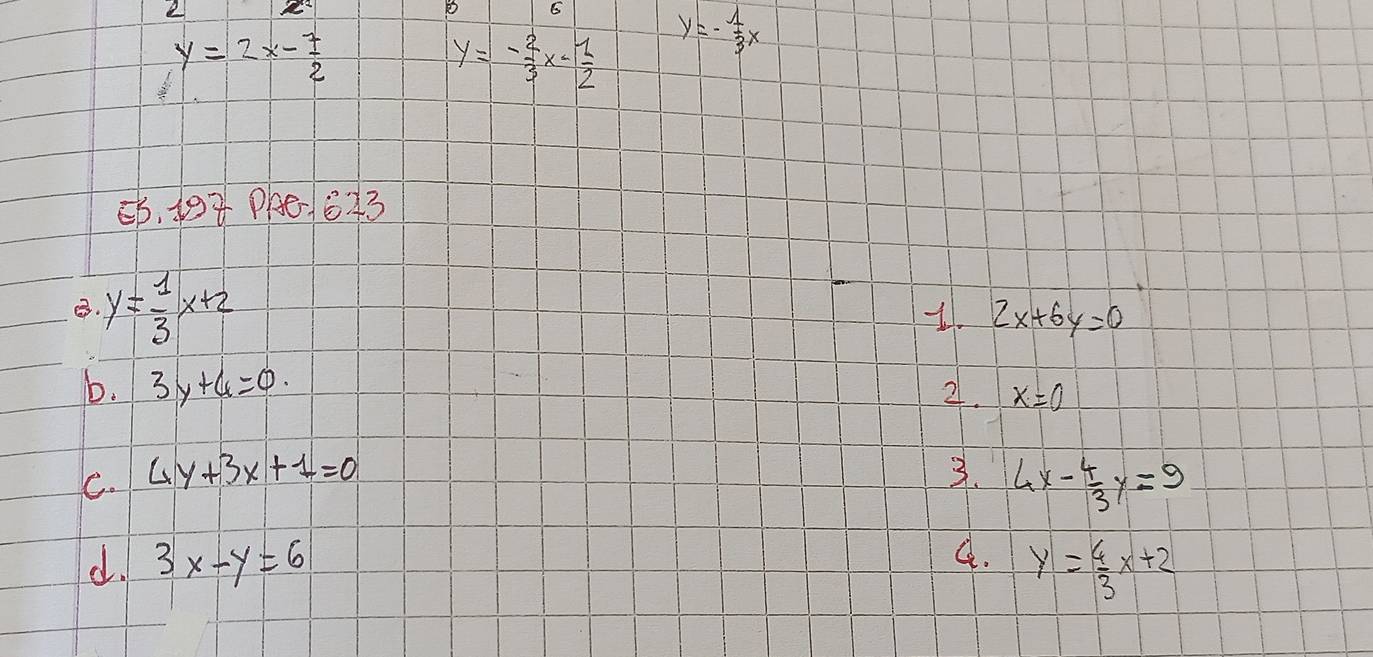 2 2 3 6
y = 2x - 7/2 y = -2/3 x - 1/2 y = -1/3 x
ES. 197 PAG. 623
a. y = 1/3 x + 2 1. 2x + 6y = 0
b. 3y + 4 = 0. 2. x = 0
c. 4y + 3x + 1 = 0 3. 4x - 4/3 y = 9
d. 3x - y = 6 4. y = 4/3 x + 2